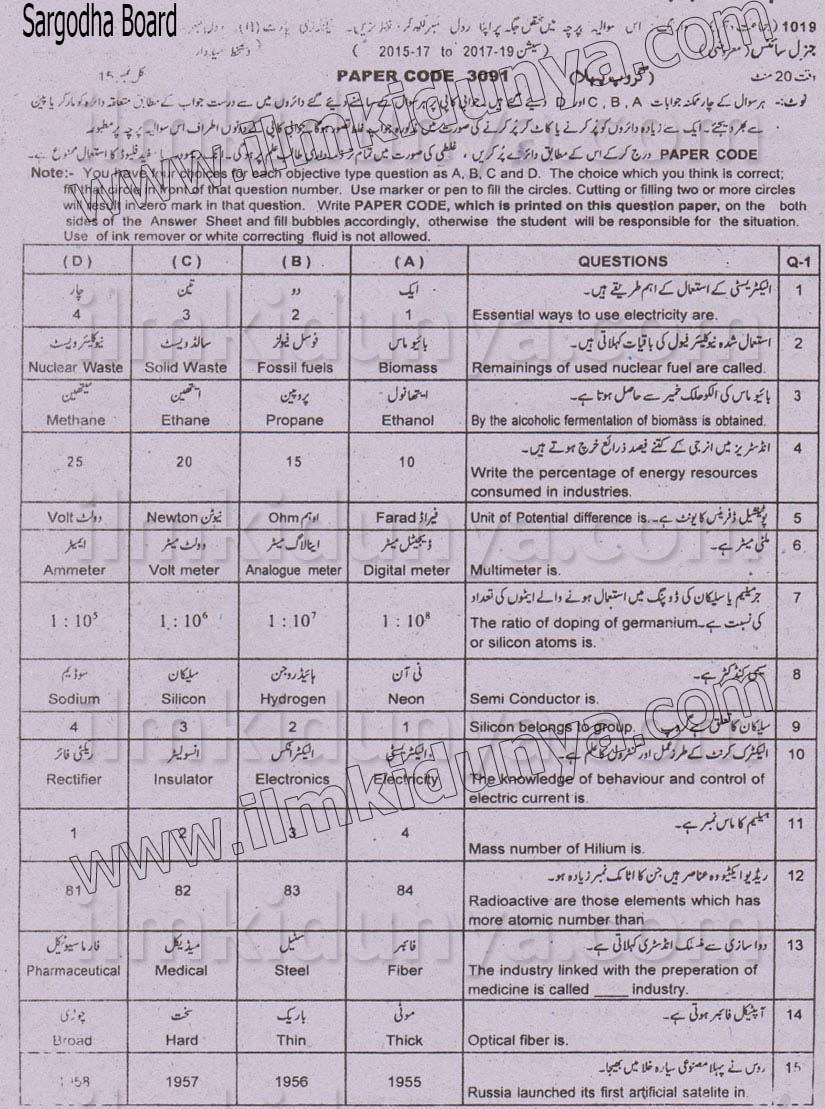 Sargodha Board
1019
جنرل سائنس (معروضی) (سیشن 2015-17 to 2017-19)
وقت 20 منٹ (گروپ پہلا) PAPER CODE 3091 کل نمبر 15
نوٹ:- ہر سوال کے چار ممکنہ جوابات A ، B ، C اور D دیئے گئے ہیں۔
PAPER CODE درج کر کے اس کے مطابق دائرے پُر کریں، غلطی کی صورت میں تمام
Note:- You have four choices for each objective type question as A, B, C and D. The choice which you think is correct;
fill that circle in front of that question number. Use marker or pen to fill the circles. Cutting or filling two or more circles
will result in zero mark in that question. Write PAPER CODE, which is printed on this question paper, on the both
sides of the Answer Sheet and fill bubbles accordingly, otherwise the student will be responsible for the situation.
Use of ink remover or white correcting fluid is not allowed.
( D ) ( C ) ( B ) ( A ) QUESTIONS Q-1
چار تین دو ایک الیکٹریسٹی کے استعمال کے اہم طریقے ہیں۔ 1
4 3 2 1 Essential ways to use electricity are.
نیوکلیئر ویسٹ سالڈ ویسٹ فوسل فیولز بائیو ماس استعمال شدہ نیوکلیئر فیول کی باقیات کہلاتی ہیں۔ 2
Nuclear Waste Solid Waste Fossil fuels Biomass Remainings of used nuclear fuel are called.
میتھین ایتھین پروپین ایتھانول بائیو ماس کی الکوحلک خمیر سے حاصل ہوتا ہے۔ 3
Methane Ethane Propane Ethanol By the alcoholic fermentation of biomass is obtained.
انڈسٹریز میں انرجی کے کتنے فیصد ذرائع خرچ ہوتے ہیں۔ 4
25 20 15 10 Write the percentage of energy resources
consumed in industries.
Volt وولٹ Newton نیوٹن Ohm اوہم Farad فیراڈ Unit of Potential difference is. پوٹینشل ڈفرینس کا یونٹ ہے۔ 5
ایمیٹر وولٹ میٹر اینالاگ میٹر ڈیجیٹل میٹر ملٹی میٹر ہے۔ 6
Ammeter Volt meter Analogue meter Digital meter Multimeter is.
جرمینیم یا سلیکان کی ڈوپنگ میں استعمال ہونے والے ایٹموں کی تعداد 7
1 : 10⁵ 1 : 10⁶ 1 : 10⁷ 1 : 10⁸ The ratio of doping of germanium کی نسبت ہے۔
or silicon atoms is.
سوڈیم سلیکان ہائیڈروجن نی آن سیمی کنڈکٹر ہے۔ 8
Sodium Silicon Hydrogen Neon Semi Conductor is.
4 3 2 1 Silicon belongs to group. سلیکان کا تعلق ہے گروپ 9
ریکٹی فائر انسولیٹر الیکٹرانکس الیکٹریسٹی الیکٹرک کرنٹ کے طرز عمل اور کنٹرول کا علم ہے۔ 10
Rectifier Insulator Electronics Electricity The knowledge of behaviour and control of
electric current is.
ہیلیم کا ماس نمبر ہے۔ 11
1 2 3 4 Mass number of Hilium is.
ریڈیو ایکٹیو وہ عناصر ہیں جن کا اٹامک نمبر زیادہ ہو۔ 12
81 82 83 84 Radioactive are those elements which has
more atomic number than
فارماسیوٹیکل میڈیکل سٹیل فائبر دوا سازی سے منسلک انڈسٹری کہلاتی ہے۔ 13
Pharmaceutical Medical Steel Fiber The industry linked with the preperation of
medicine is called ____ industry.
چوڑی سخت باریک موٹی آپٹیکل فائبر ہوتی ہے۔ 14
Broad Hard Thin Thick Optical fiber is.
روس نے پہلا مصنوعی سیارہ خلا میں بھیجا۔ 15
1958 1957 1956 1955 Russia launched its first artificial satelite in.
www.ilmkidunya.com
www.ilmkidunya.com
ilmkidunya.com